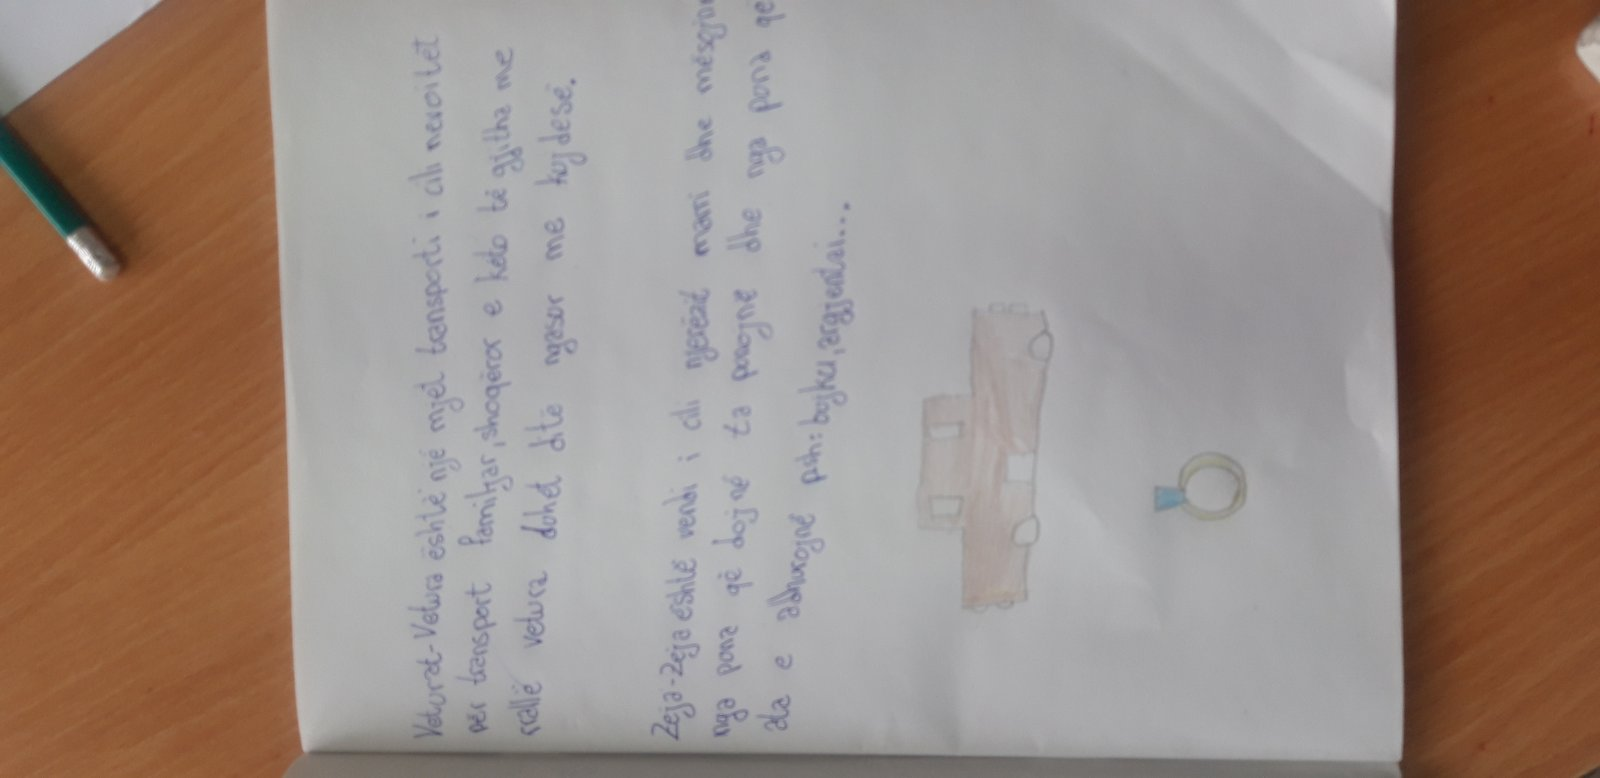 Veturat-Vetura është një mjet transporti i cili merret
për transport familjar, shoqëror e këto të gjitha me
rrallë vetura duhet ditë ngasor me kujdesë.
Zeja-Zeja është vendi i cili njerëzië marri dhe mësojnë
nga pona që dojnë ta ponojnë dhe nga pona që
ata e adhurojnë psh: bujku, argjendai...